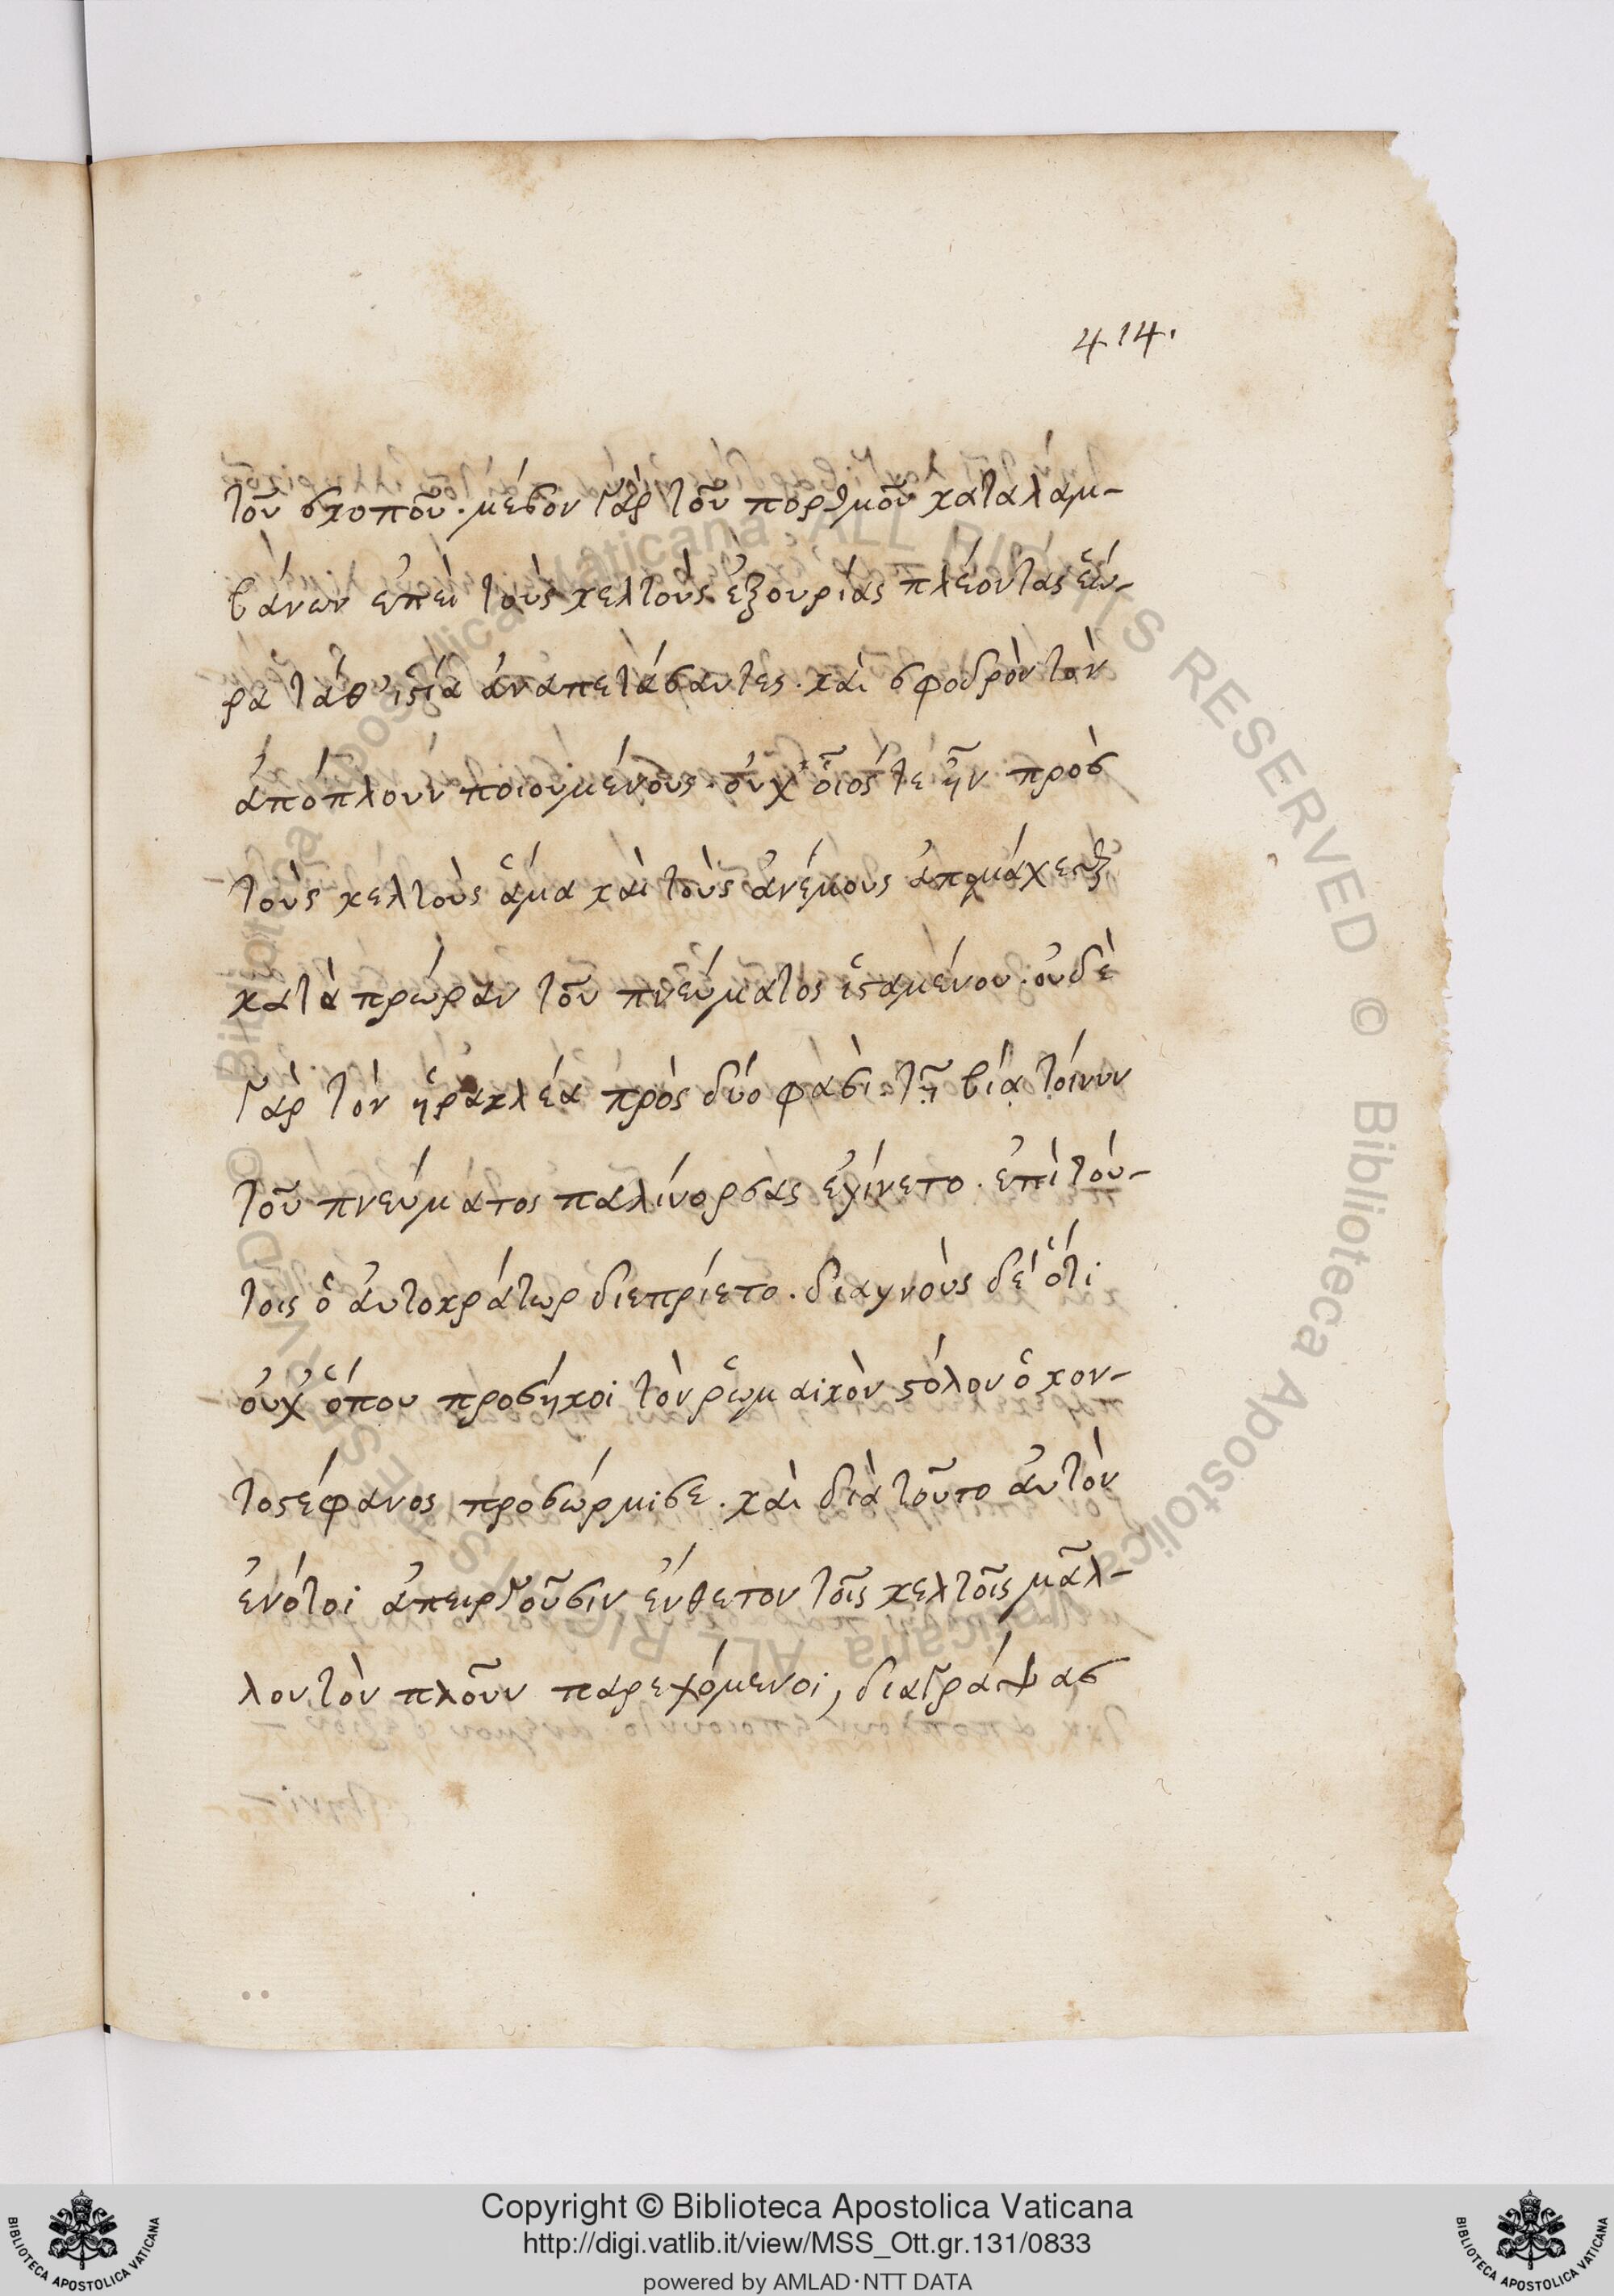 414.
τοῦ σκοποῦ. μέσον γὰρ τοῦ πορθμοῦ καταλαμ-
βάνων ἐπεὶ τοὺς κελτοὺς ἐξουρίας πλέοντας ἑώ-
ρα τάθ' ἱστία ἀναπετάσαντες. καὶ σφοδρὸν τὸν
ἀπόπλουν ποιουμένους. οὐχ' οἷός τε ἦν πρὸσ
τοὺς κελτοὺς ἅμα καὶ τοὺς ἀνέμους ἀπομάχεσθ
κατὰ πρώραν τοῦ πνεύματος ἱσταμένου. οὐδὲ
γὰρ τὸν ἡρακλέα πρὸς δύο φασὶ. τῇ βίᾳ τοίνυν
τοῦ πνεύματος παλίνορσας ἐγίνετο. ἐπὶ τού-
τοις ὁ αὐτοκράτωρ διεπρίετο. διαγνοὺς δὲ ὅτι
οὐχ ὅπου προσήκοι τὸν ῥωμαικὸν στόλον ὁ κον-
τοστέφανος προσώρμισε. καὶ διὰ τοῦτο αὐτὸν
ἐνότοι ἀπειργοῦσιν ἔνθετον τοῖς κελτοῖς μᾶλ-
λον τὸν πλοῦν παρεχόμενοι, διαγράψασ
Copyright © Biblioteca Apostolica Vaticana
http://digi.vatlib.it/view/MSS_Ott.gr.131/0833
powered by AMLAD·NTT DATA